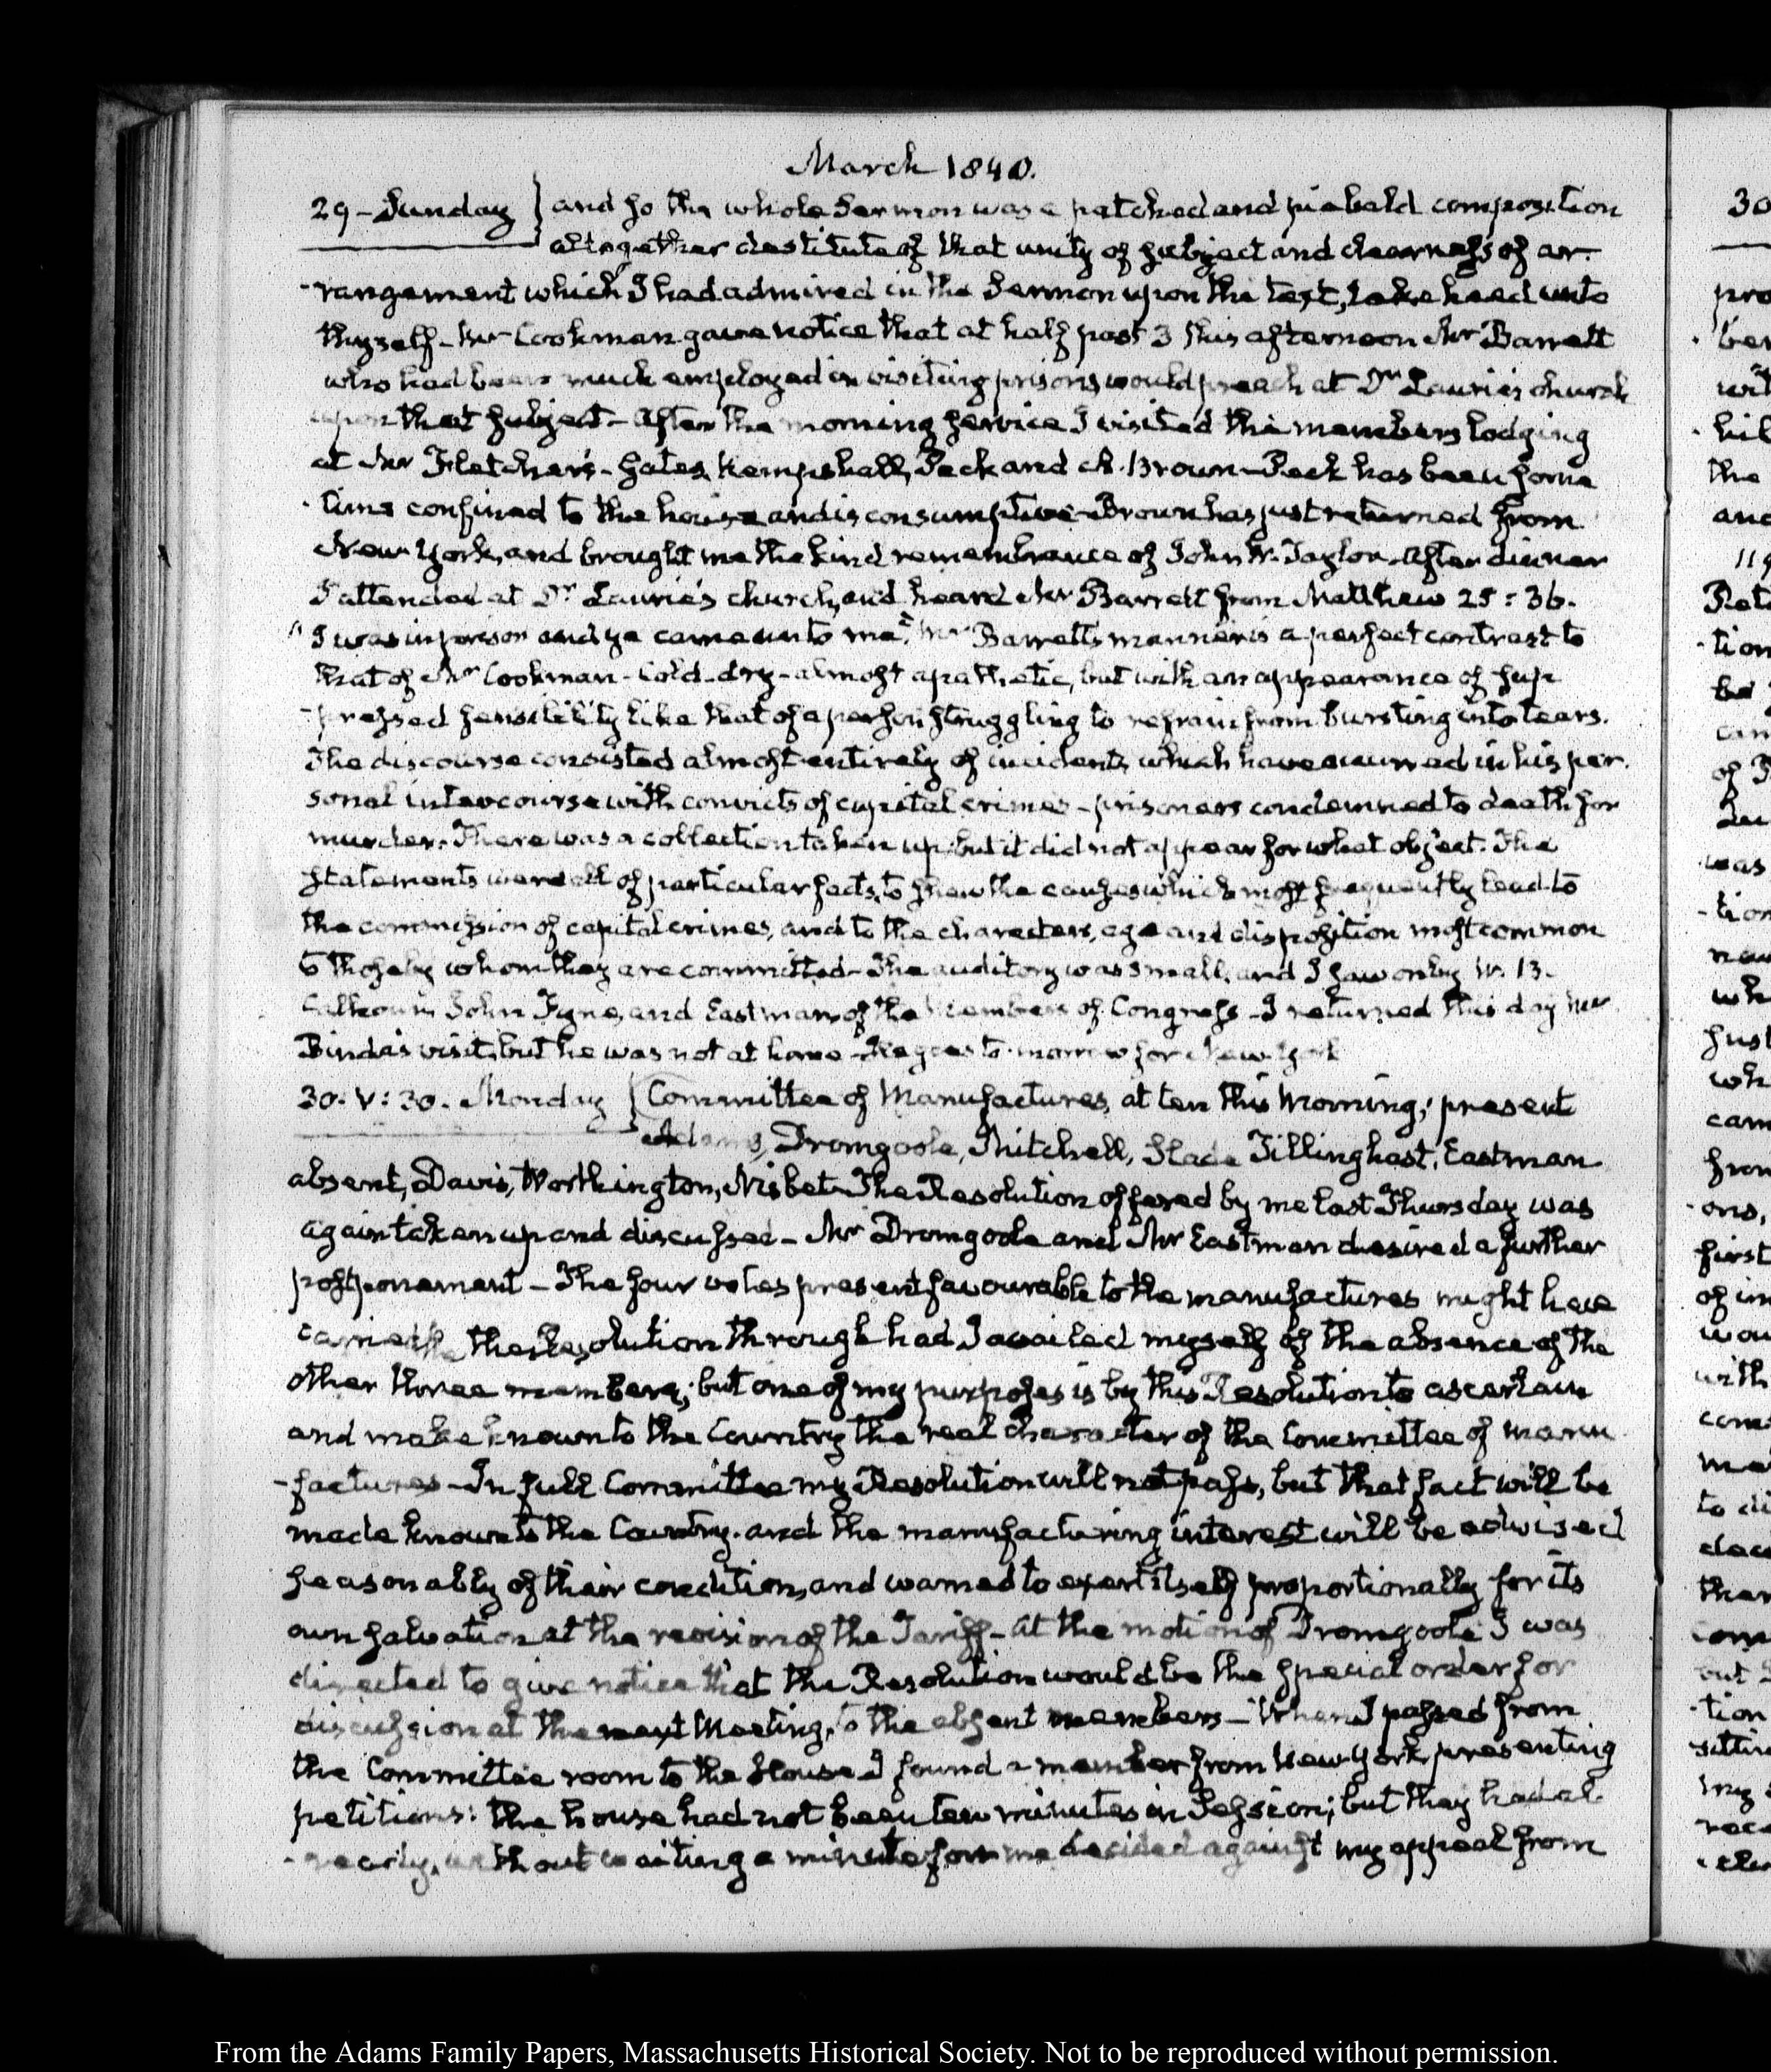 March 1840.
29 - Sunday } and so the whole Sermon was a patched and piebald composition
altogether destitute of that unity of subject and clearness of ar-
-rangement which I had admired in the Sermon upon the text, take heed unto
thyself - Mr Cookman gave notice that at half past 3 this afternoon Mr Barrett
who had been much employed in visiting prisons, would preach at Dr Laurie's church
upon that subject - After the morning service I visited the members lodging
at Mr Fletcher's - Gates, Kempshall, Peck and A. Brown - Peck has been some
-time confined to the house and is consumptive - Brown has just returned from
New-York, and brought me the kind remembrance of John W. Taylor. After dinner
I attended at Dr Laurie's church, and heard Mr Barrett from Matthew 25:36.
"I was in prison and ye came unto me." Mr Barrett's manner is a perfect contrast to
that of Mr Cookman - Cold - dry - almost apathetic, but with an appearance of sup
-pressed sensibility like that of a person struggling to refrain from bursting into tears.
The discourse consisted almost entirely of incidents which have occurred in his per-
sonal intercourse with convicts of capital crimes - prisoners condemned to death for
murder. There was a collection taken up; but it did not appear for what object. The
statements were all of particular facts, to shew the causes which most frequently lead to
the commission of capital crimes, and to the characters, age and disposition most common
to those by whom they are committed - The auditory was small, and I saw only W. B.
Calhoun John Fyne, and Eastman of the Members of Congress - I returned this day Mr
Binda's visit, but he was not at home - He goes to-morrow for New-York
30. V:30. Monday } Committee of Manufactures, at ten this Morning; present
Adams, Dromgoole, Mitchell, Slade Tillinghast, Eastman
absent, Davis, Worthington, Nisbet - The Resolution offered by me last Thursday was
again taken up and discussed - Mr Dromgoole and Mr Eastman desired a further
postponement - The four votes present favourable to the manufactures might have
carried the Resolution through had I availed myself of the absence of the
other three members; but one of my purposes is by this Resolution to ascertain
and make known to the Country the real character of the Committee of Manu
-factures - In full Committee my Resolution will not pass, but that fact will be
made known to the Country, and the manufacturing interest will be advised
seasonably of their condition, and warned to exert itself proportionally for its
own salvation at the revision of the Tariff - At the motion of Dromgoole I was
directed to give notice that the Resolution would be the special order for
discussion at the next Meeting, to the absent members - When I passed from
the Committee room to the House I found a member from New-York, presenting
petitions: the house had not been ten minutes in Session; but they had al-
-ready, without waiting a minute for me decided against my appeal from
30
pro
ber
wil
hil
the
and
was
who
wh
cam
from
ons,
first
of im
wou
with
to di
ther
but
tion
my
From the Adams Family Papers, Massachusetts Historical Society. Not to be reproduced without permission.